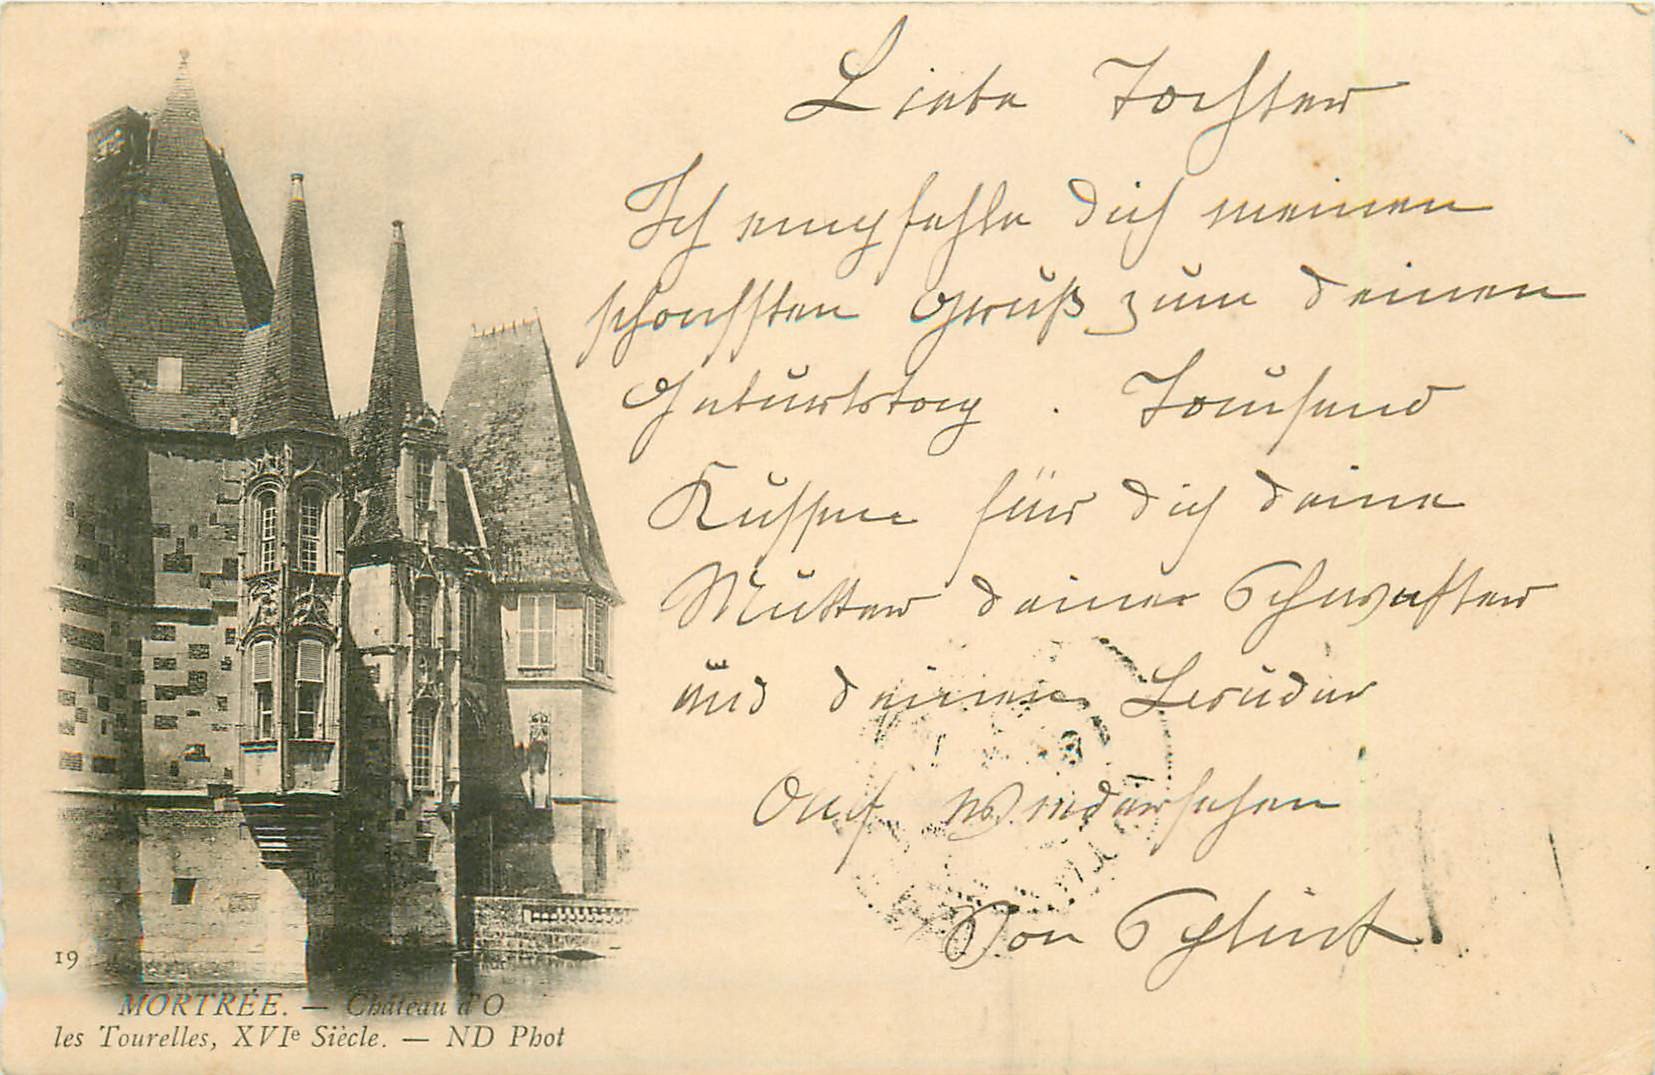 Liebe Tochter
Ich empfehle dich meinen
schonsten Gruß zum deinen
Geburtstag . Tausend
Kussen für dich deine
Mutter deine Schwester
und deinen Bruder
Auf Wiedersehen
Von
19
MORTRÉE. — Château d'O
les Tourelles, XVIe Siècle. — ND Phot